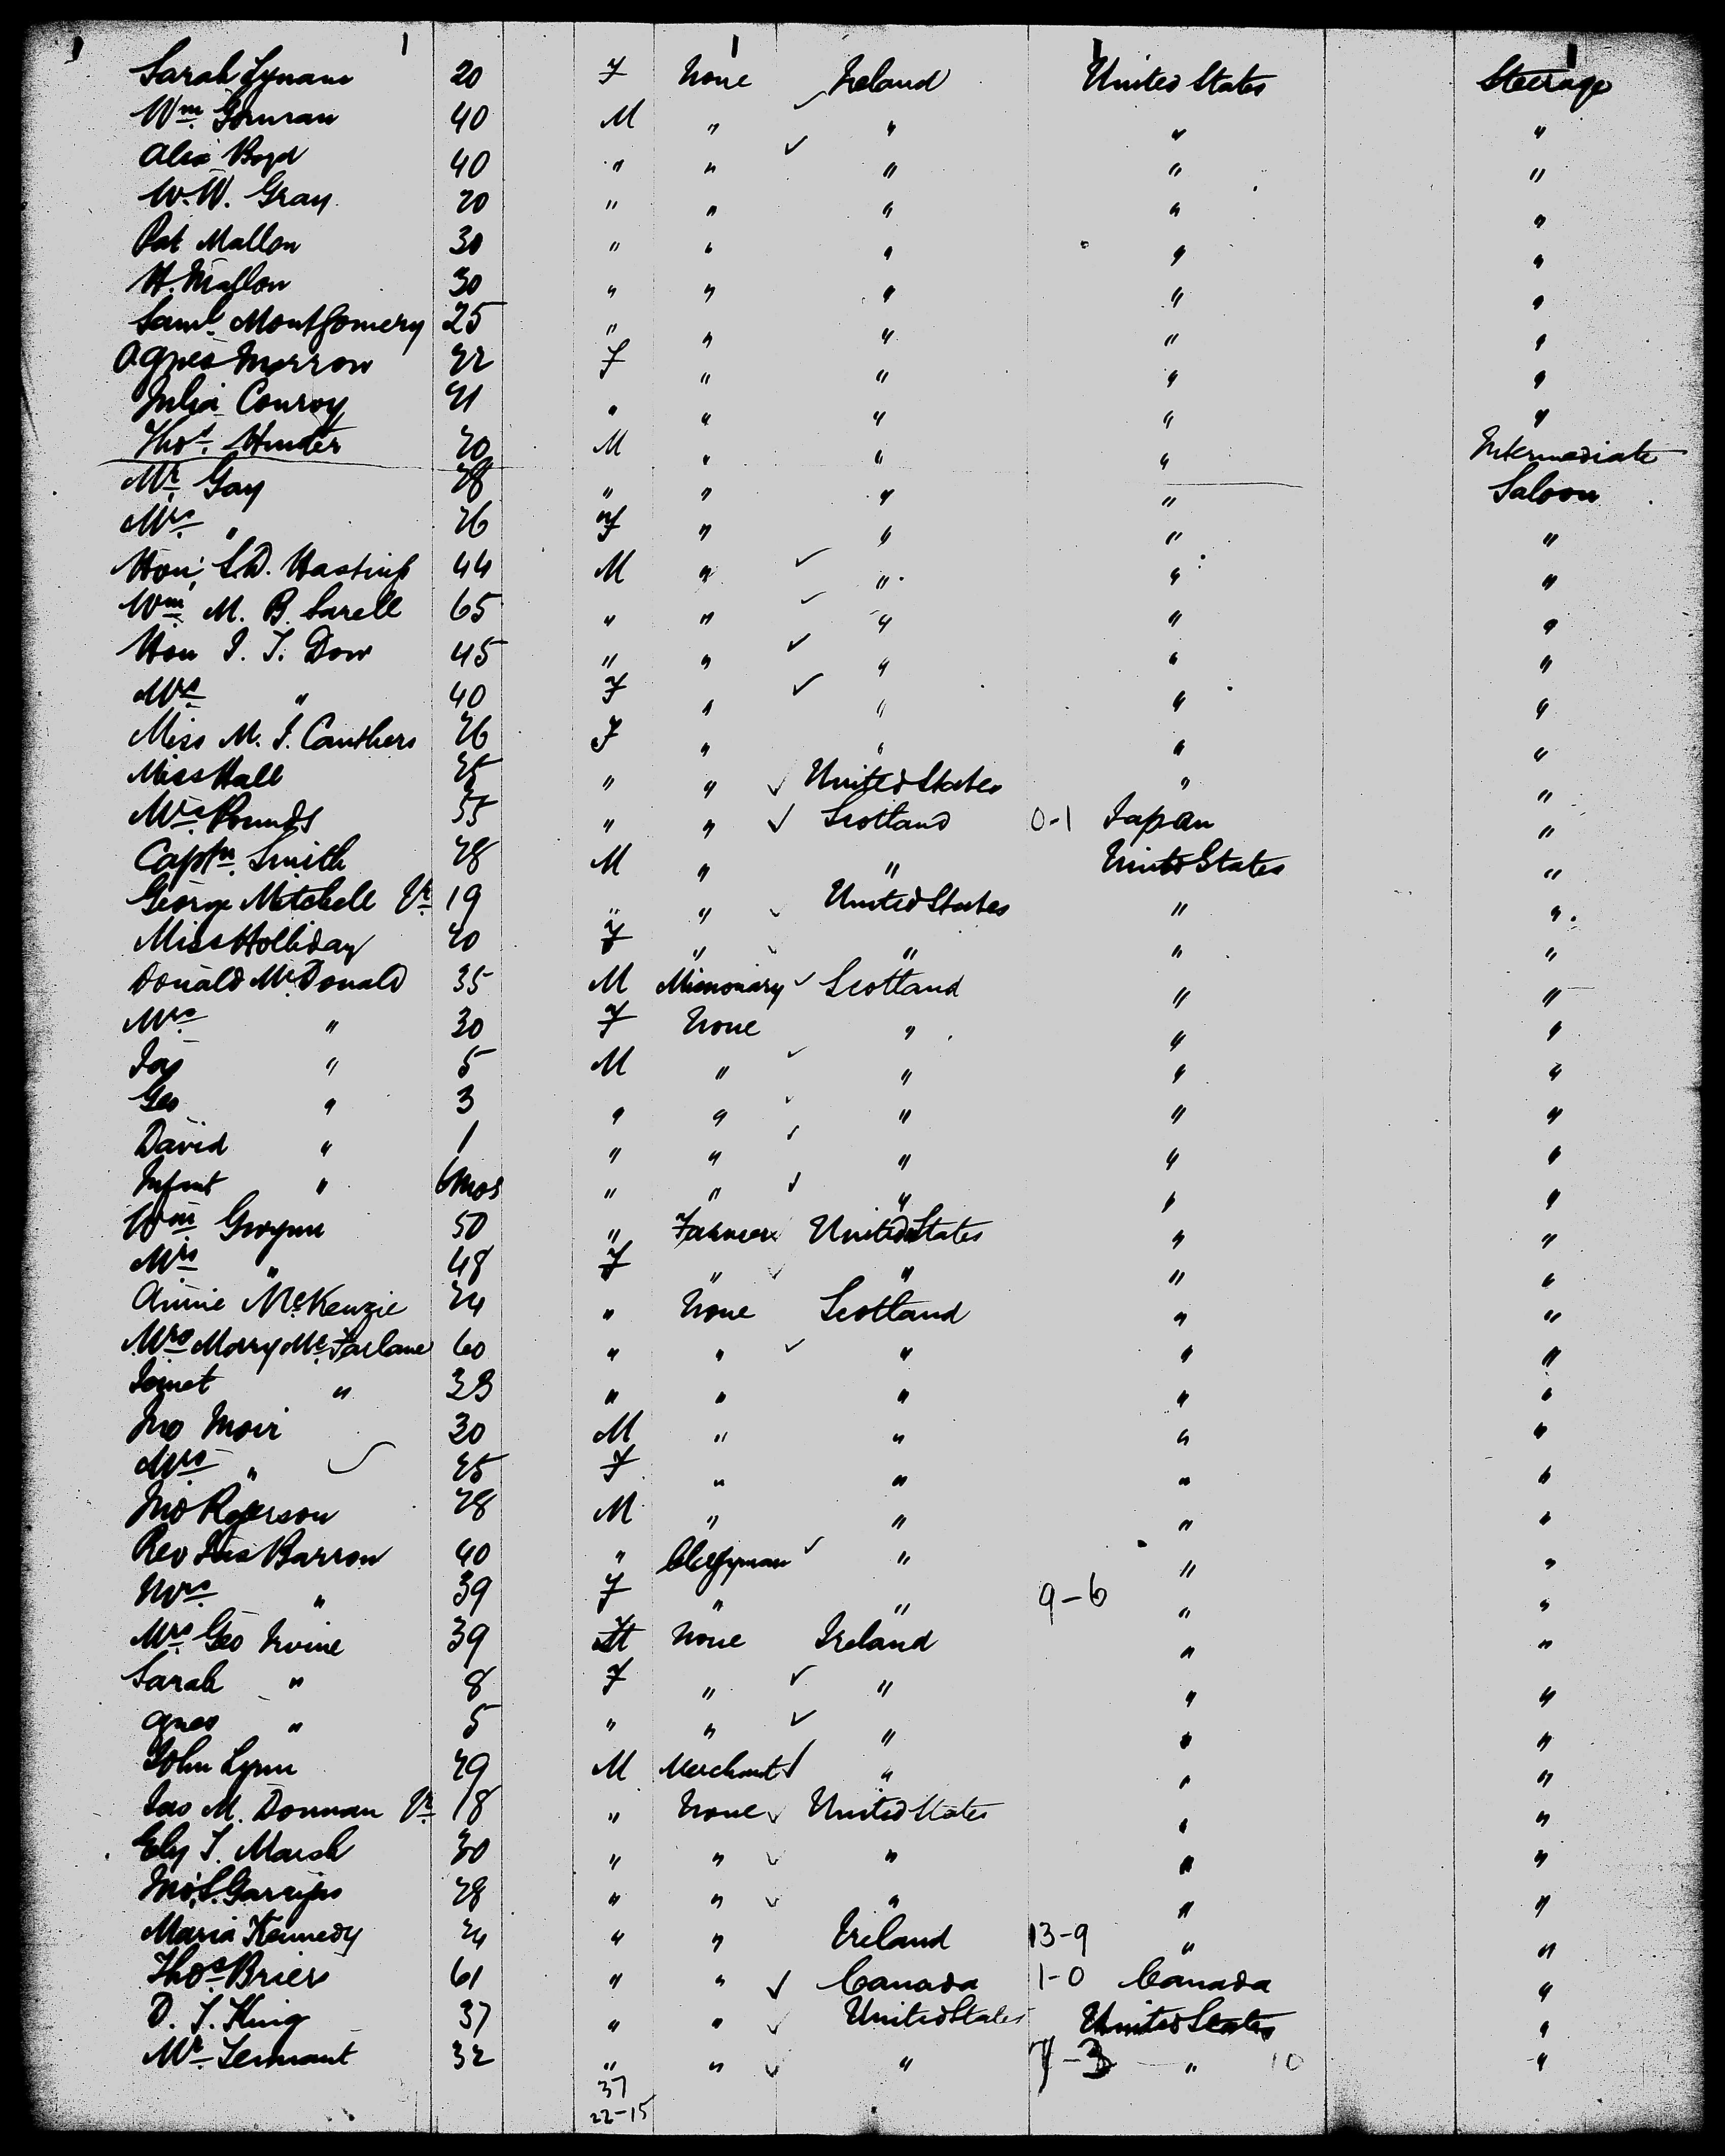 Sarah Lynam 20 F None Ireland United States Steerage
Wm. Gorman 40 M " " " "
Alex Boyd 40 " " " " "
W. W. Gray 20 " " " " "
Pat Mallon 30 " " " " "
H. Mallon 30 " " " " "
Saml. Montgomery 25 " " " " "
Agnes Morrow 22 F " " " "
Julia Conroy 21 " " " " "
Thos. Hunter 20 M " " " Intermediate
Mr. Gay 28 " " " " Saloon
Mrs. " 26 F " " " "
Hon. S. D. Hastings 44 M " " " "
Wm. M. B. Sarell 65 " " " " "
Hon I. T. Dow 45 " " " " "
Mrs " 40 F " " " "
Miss M. J. Cauthers 26 F " " " "
Miss Hall 25 " " United States " "
Mrs. Pounds 55 " " Scotland 0-1 Japan "
Captn. Smith 28 M " " United States "
George Mitchell Jr. 19 " " United States " "
Miss Holliday 20 F " " " "
Donald McDonald 35 M Missionary Scotland " "
Mrs. " 30 F None " " "
Jas " 5 M " " " "
Geo " 3 " " " " "
David " 1 " " " " "
Infant " 6 mos " " " " "
Wm Gwynn 50 " Farmer United States " "
Mrs " 48 F " " " "
Annie McKenzie 24 " None Scotland " "
Mrs. Mary McFarlane 60 " " " " "
Jennet " 23 " " " " "
Jno Moir 30 M " " " "
Mrs " 25 F " " " "
Jno Rogerson 28 M " " " "
Rev Jas Barron 40 " Clergyman " " "
Mrs. " 39 F " " 9-6 " "
Mrs. Geo Irvine 39 None Ireland " "
Sarah " 8 F " " " "
Agnes " 5 " " " " "
John Lynn 29 M Merchant " " "
Jas M. Donnan Jr. 18 " None United States " "
Ely T. Marsh 30 " " " " "
Jno. S. 28 " " " " "
Maria Kennedy 24 " " Ireland 13-9 " "
Thos. Brier 61 " " Canada 1-0 Canada "
D. T. King 37 " " United States United States "
Mr. Tennant 32 " " " 7-3 " 10 "
37
22-15